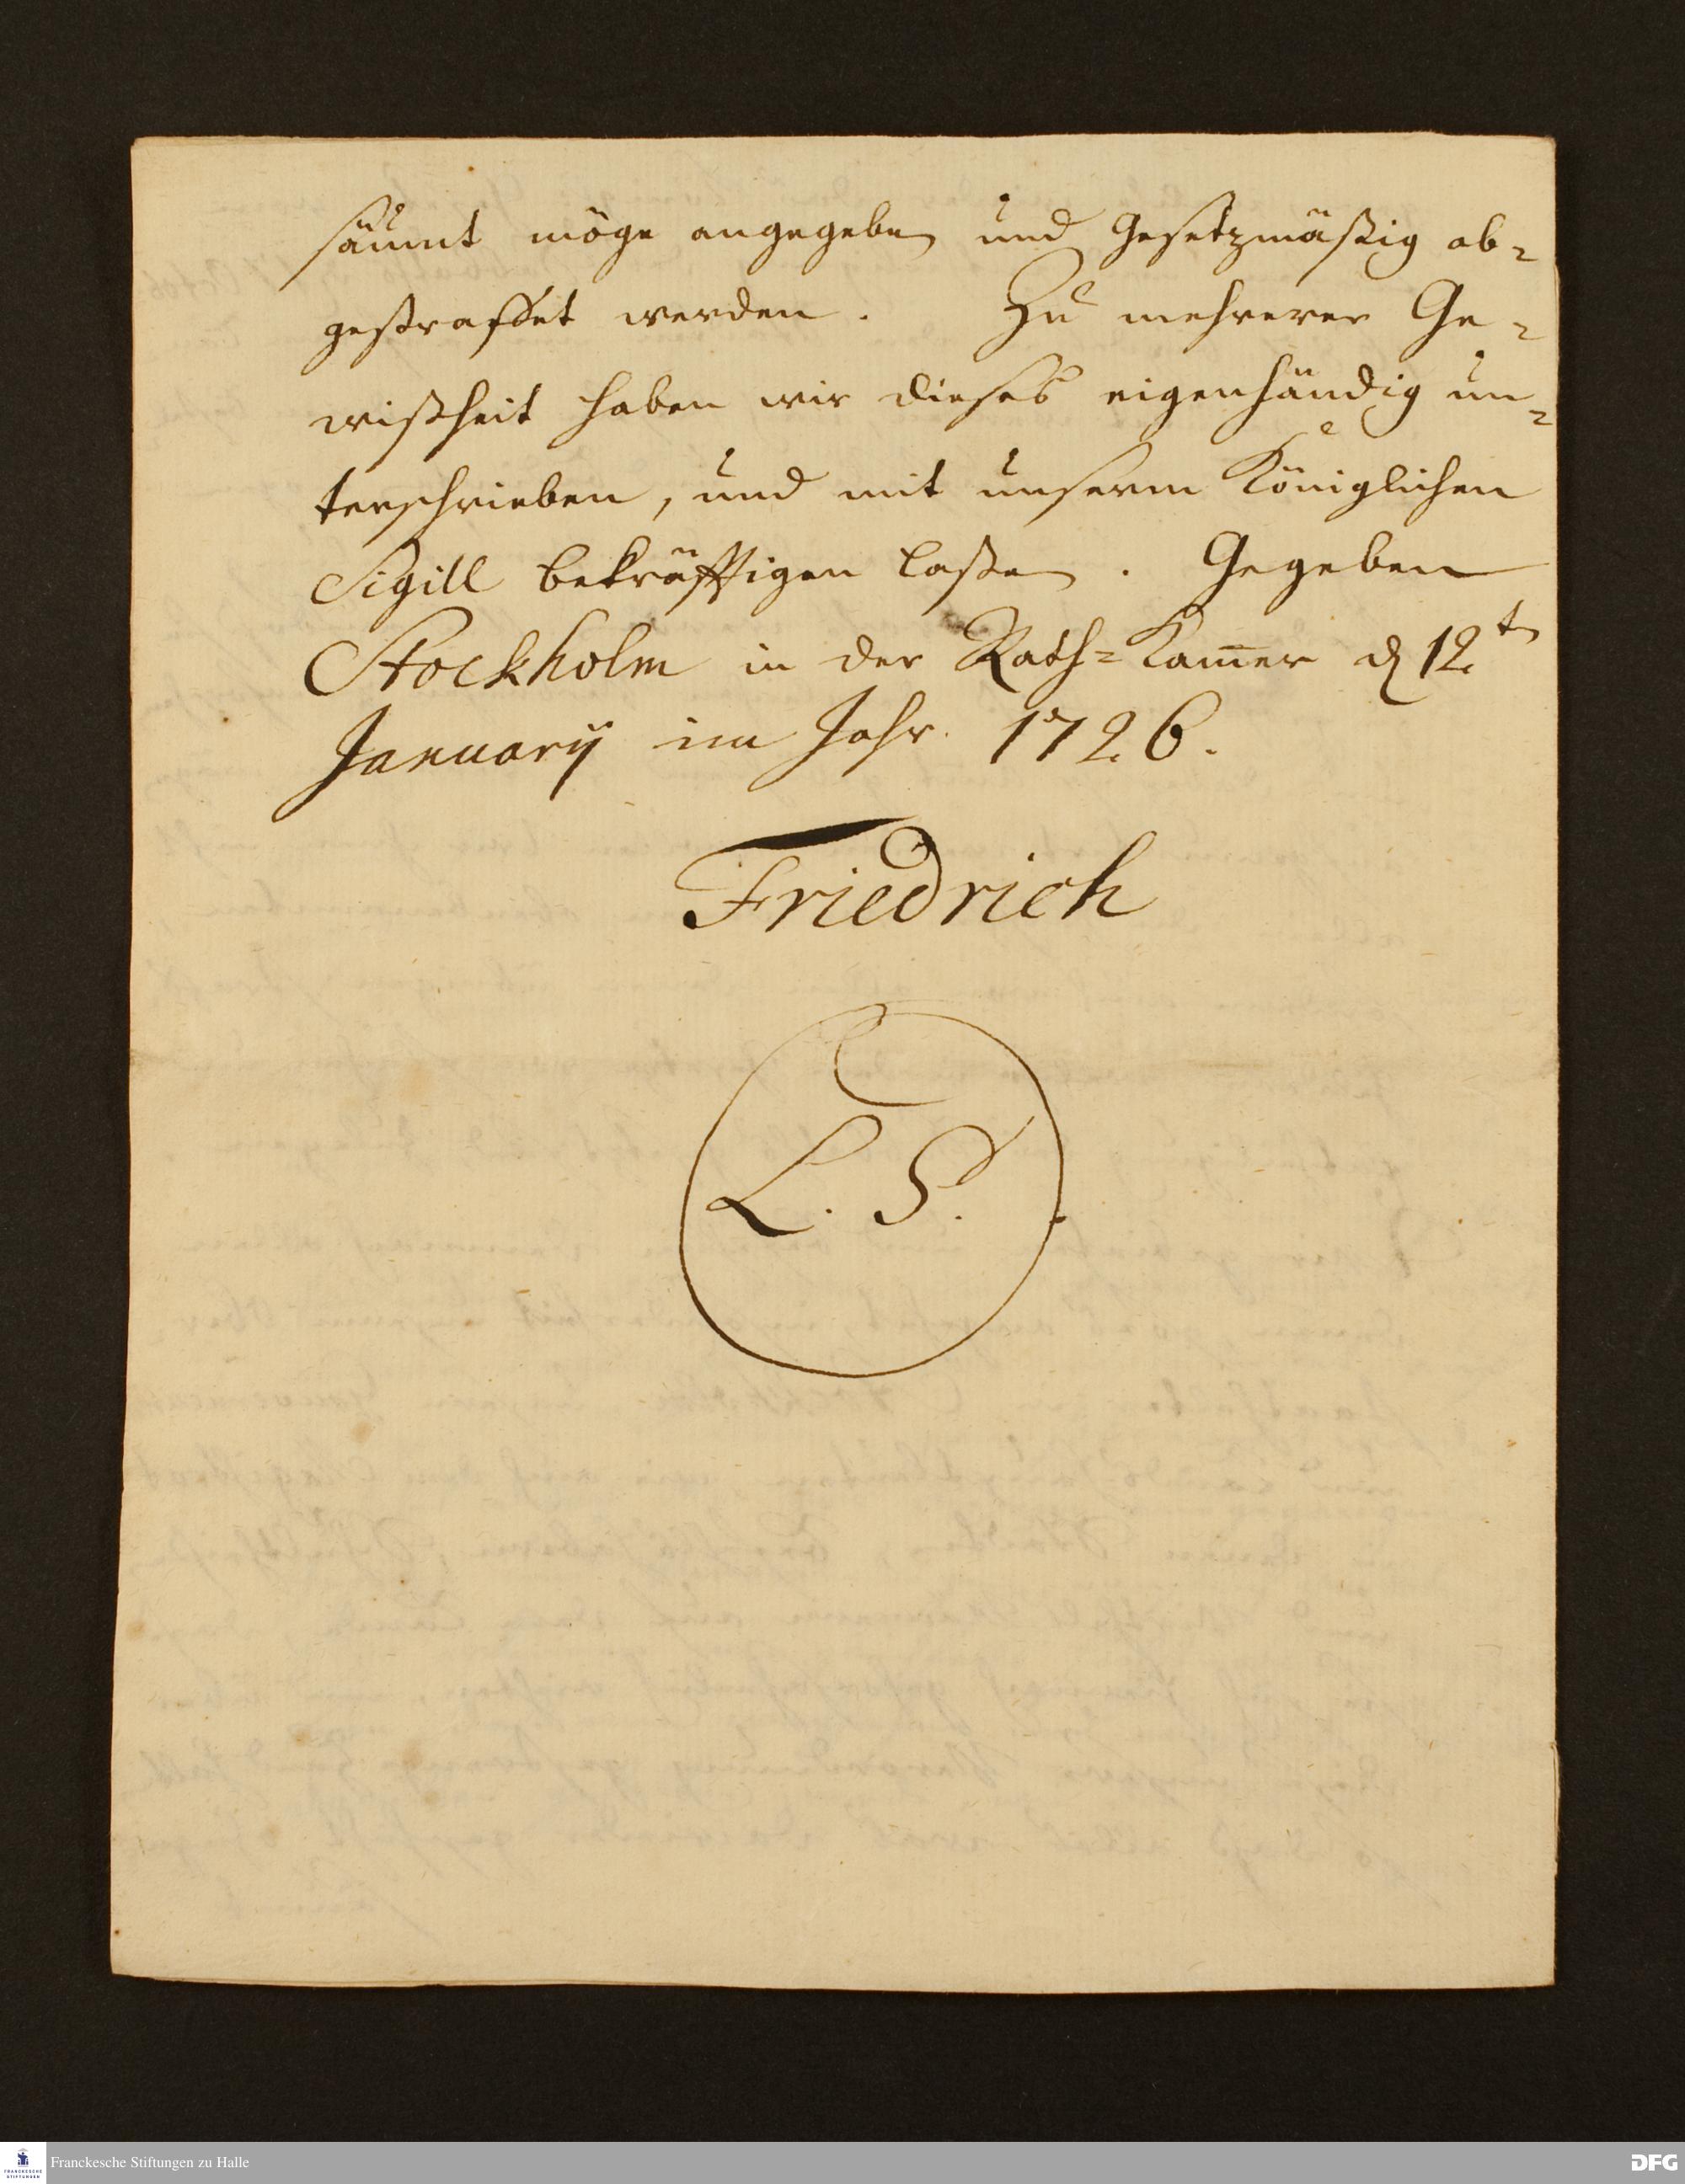 säumt möge angegeben und Gesetzmäßig ab-
gestraffet werden. Zu mehrerer Ge-
wißheit haben wir dieses eigenhändig un-
terschrieben, und mit unserm Königlichen
Sigill bekräfftigen laßen. Gegeben
Stockholm in der Rath-Kam̄er d 12.t
January im Jahr. 1726.
Friedrich
L. S.
Franckesche Stiftungen zu Halle
DFG
FRANCKESCHE
STIFTUNGEN